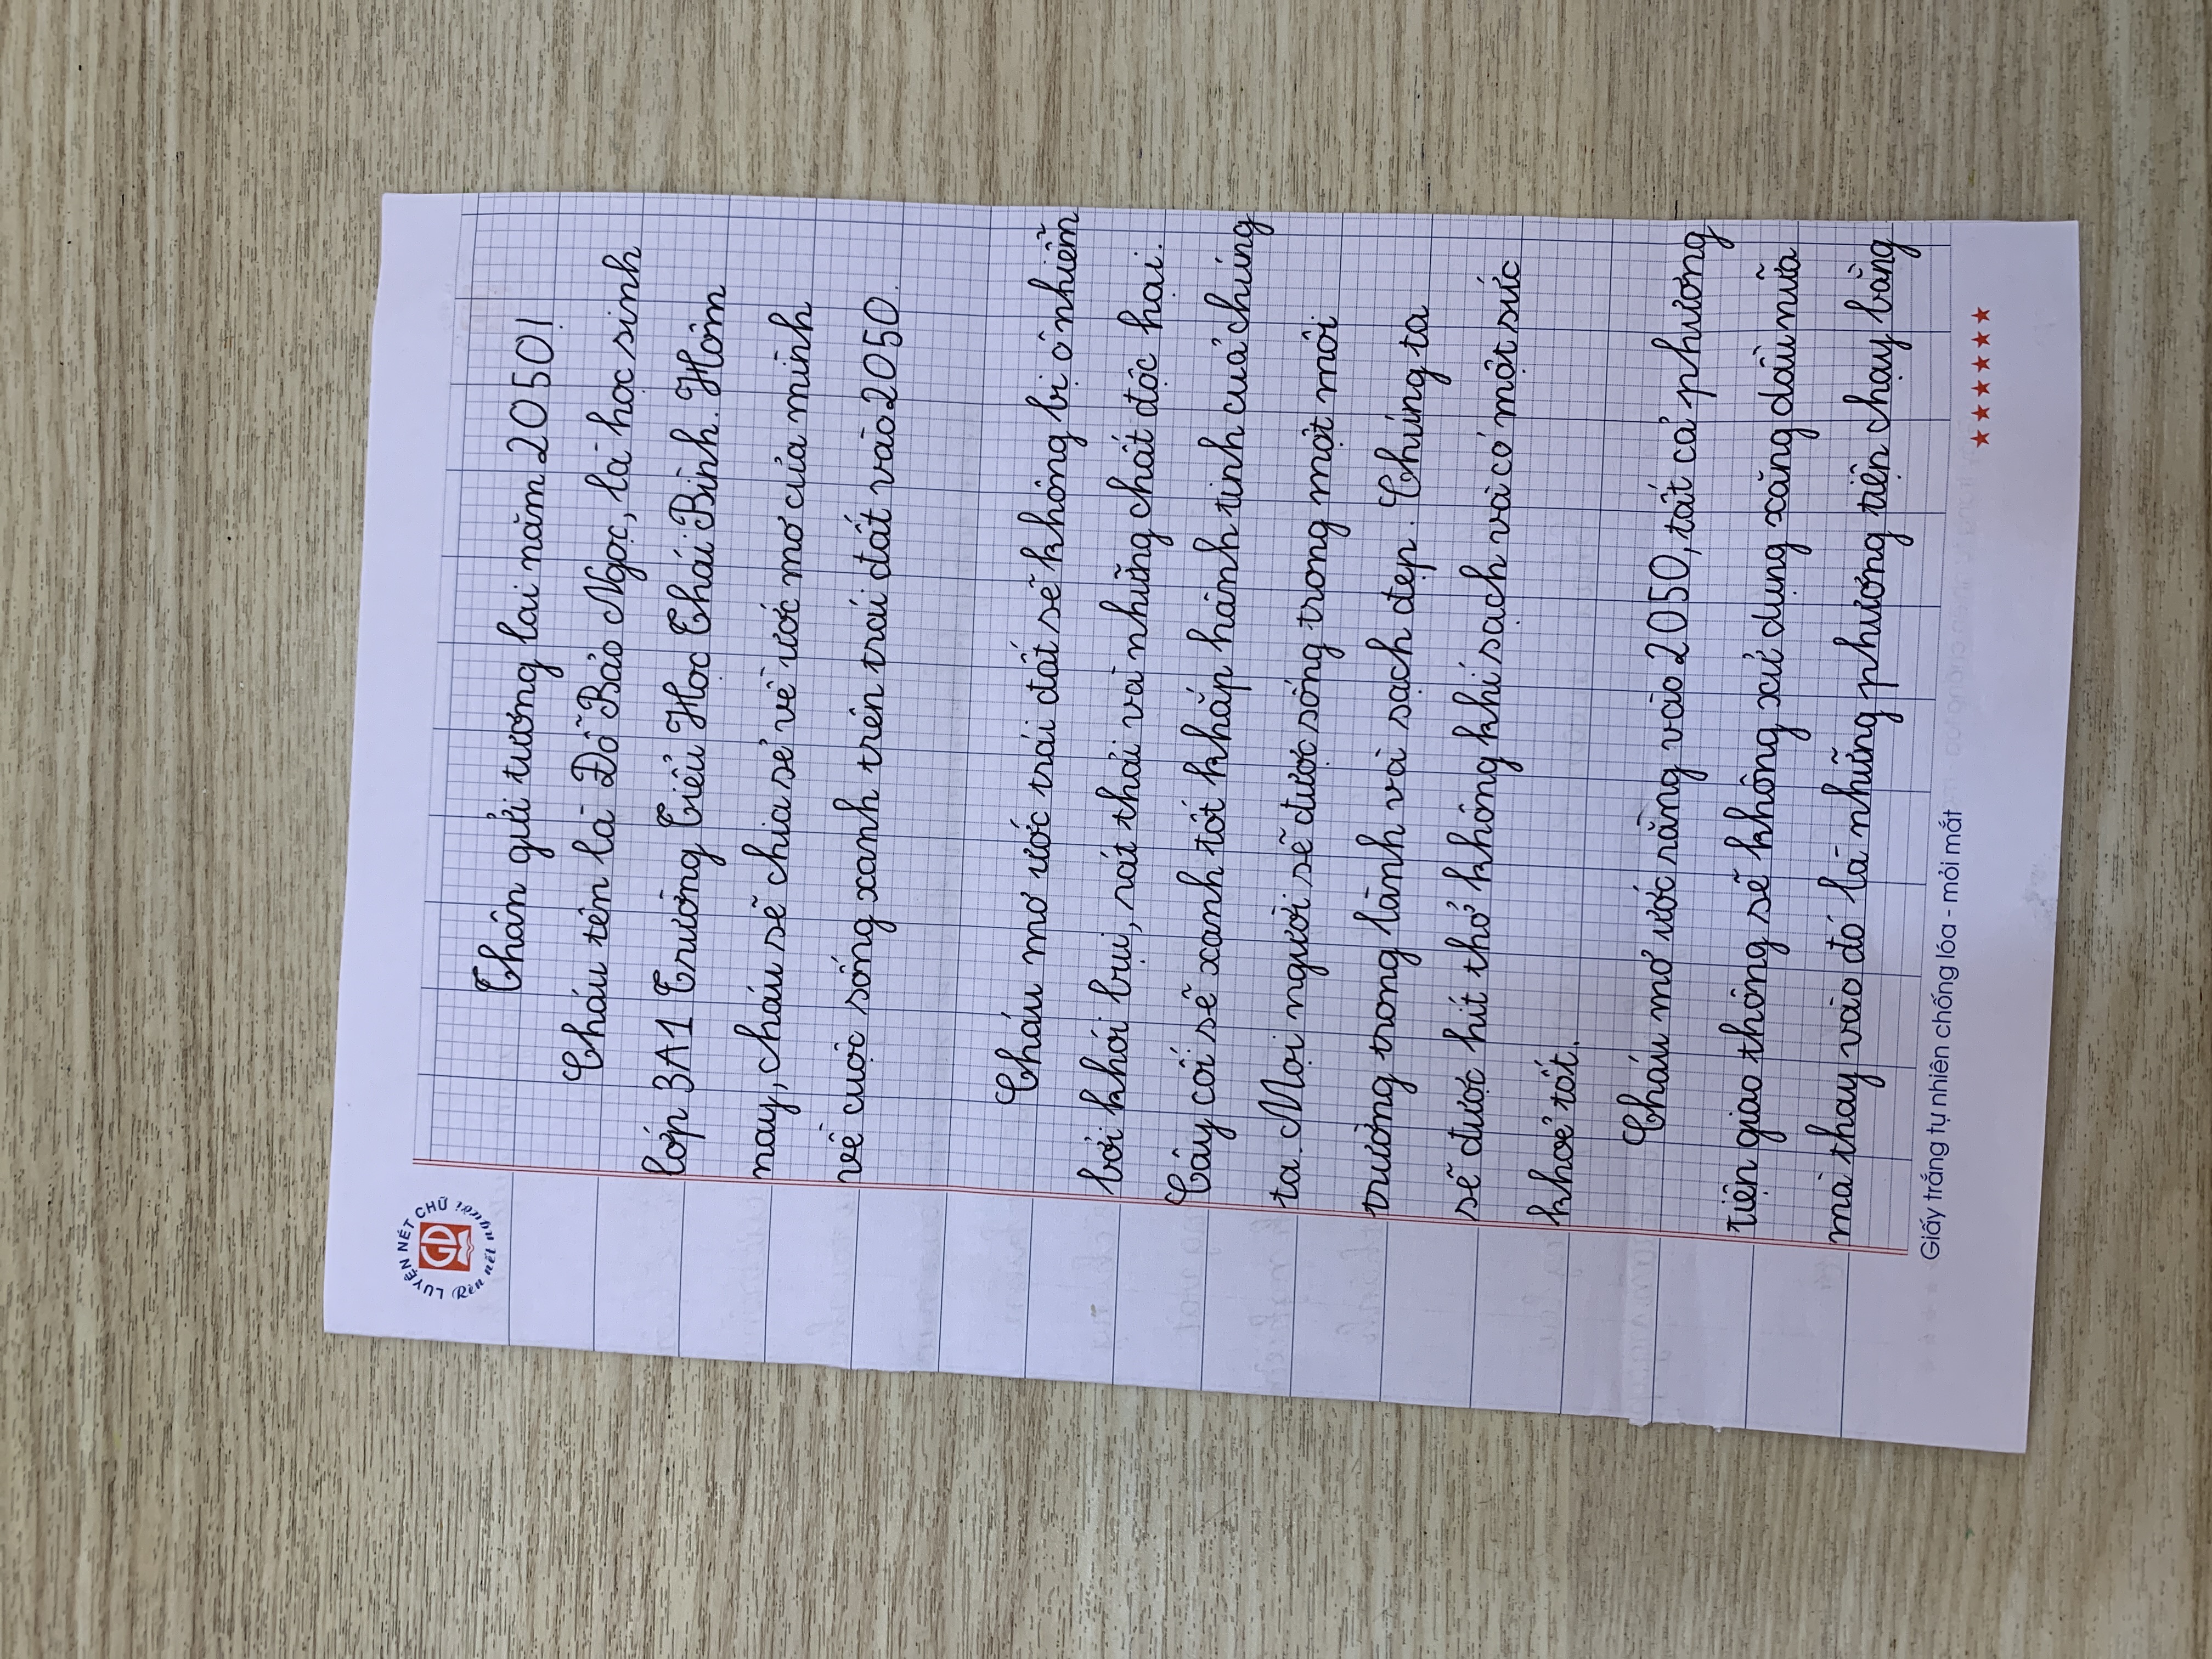 LUYỆN NÉT CHỮ
Rèn nết người
GD
Thân gửi tương lai năm 2050!
Cháu tên là Đỗ Bảo Ngọc, là học sinh
lớp 3A1 Trường Tiểu Học Thái Bình. Hôm
nay, cháu sẽ chia sẻ về ước mơ của mình
về cuộc sống xanh trên trái đất vào 2050.
Cháu mơ ước trái đất sẽ không bị ô nhiễm
bởi khói bụi, rát thải và những chát độc hại.
Cây cối sẽ xanh tốt khắp hành tinh cuả chúng
ta. Mọi người sẽ được sống trong một môi
trường trong lành và sạch đẹp. Chúng ta
sẽ được hít thở không khí sạch và có một sức
khoẻ tốt.
Cháu mơ ước rằng vào 2050, tất cả phương
tiện giao thông sẽ không xử dụng xăng dầu nữa
mà thay vào đó là những phương tiện chạy bằng
Giấy trắng tự nhiên chống lóa - mỏi mắt